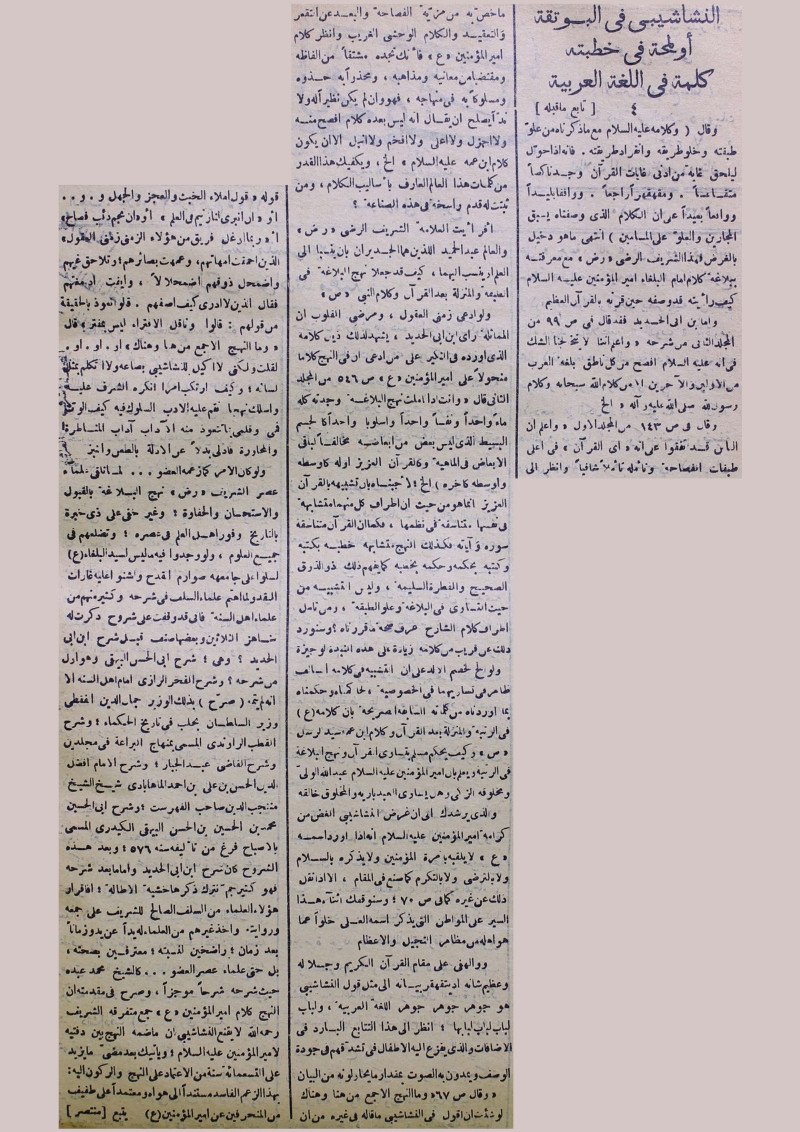 النشاشيبي في البوتقة
أو لمحة في خطبته
كلمة في اللغة العربية
٤ [ تابع ماقبله ]
وقال ( وكلامه عليه السلام مع ماذكرناه من علوّ
طبقته وخلو طريقه وانفراد طريقته . فانه اذا حول
ليلحق غاية من ادنى غايات القرآن وجد ناكصاً
متقاعساً . ومقهقهراً راجعاً . وواقفاً بليداً
وواقعاً بعيداً على ان الكلام الذي وصفناه يسبق
المجارين والعلو على المسامين ) انتهى ماهو دخيل
بالغرض فهذا الشريف الرضي « رض » مع معرفته
ببلاغة كلام امام البلغاء امير المؤمنين عليه السلام
كيف رأيته قد وصفه حين قرنه بالقرآن العظيم
واما بن ابي الحديد فقد قال في ص ٩٩ من
المجلد الثاني من شرحه « واعلم اننا لا يتخالجنا الشك
في انه عليه السلام افصح من كل ناطق بلغة العرب
من الاولين والآخرين الا من كلام الله سبحانه وكلام
رسول الله صلى الله عليه وآله » الخ
وقال في ص ١٤٣ من المجلد الاول « واعلم ان
الناس قد تفقوا على انه « اي القرآن » في اعلى
طبقات الفصاحة وتأمله تأملاً شافياً وانظر الى
ماخص به من مزية الفصاحة والبعد عن التقعر
والتعقيد والكلام الوحشي الغريب وانظر كلام
امير المؤمنين « ع » فانك تجده مشتقاً من الفاظه
ومقتضباً من معانيه ومذاهبه ، ومحذوا به حذوه
ومسلوكا به في منهاجه ، فهو وان لم يكن نظيراً له ولا
نداً يصلح ان يقال انه ليس بعده كلام افصح منه
ولا اجزل ولا اعلى ولا افخم ولا انبل الا ان يكون
كلام ابن عمه عليه السلام » الخ ، ويكفيك هذا القدر
من كلمات هذا العالم العارف بأساليب الكلام ، ومن
ثبتت له قدم راسخة في هذه الصناعة ؟
افرأيت العلامة الشريف الرضي « رض »
والعالم عبد الحميد اللذين هما الجديران بان
العلم ان ينسب اليهما ، كيف قد جعلا نهج البلاغة في
العليمة والمنزلة بعد القرآن وكلام النبي « ص »
ولو ادعى زمني العقول ، ومرضى القلوب ان
المماثلة رأي ابن ابي الحديد ، يشهد لذلك ذيل كلامه
الذي اورده في النكير على من ادعى ان في النهج كلاما
منحولا على امير المؤمنين « ع » ص ٥٤٦ من المجلد
الثاني قال « وانت اذا تأملت نهج البلاغة وجدته كله
ماء واحداً ونفساً واحداً واسلوبا واحداً كالجسم
البسيط الذي ليس بعض من ابعاضه مخالفاً لباقي
الابعاض في الماهية وكالقرآن العزيز اوله كاوسطه
واوسطه كآخره ) الخ ؛ لأجبناه بان تشبيهه بالقرآن
العزيز انما هو من حيث ان اطراف كل منهما متشابهة
في نفسها متناسقة في نظمها ، فكما ان القرآن متناسقة
سوره وآياته فكذلك النهج متشابهة خطبه بكتبه
وكتبه بحكمه وحكمه بخطبه كما يفهم ذلك ذو الذوق
الصحيح والفطرة السليمة ، وليس التشبيه من
حيث التساوي في البلاغة وعلو الطبقة ، ومن تأمل
اطراف كلام الشارح عرف صحة ماقررناه ؛ وسنورد
ذلك عن قريب من كلامه زيارة على هذه النبذة لوجيزة
ولو الح الخصم الالد على ان التشبيه في كلامه السالف
ظاهر في تساويهما في الخصوصية ، لحاكمناه وحكمناه
بما اوردناه من كلماته السابقة الصريحة بان كلامه (ع)
في الرتبة والمنزلة بعد القرآن وكلام ابن عمه سيد لرسل
« ص » وكيف يحكم مسلم بتساوي القرآن ونهج البلاغة
في الرتبة ويعلم بان امير المؤمنين عليه السلام عبد الله الولي
ومخلوقه الزكي وهل يساوى العبد باريه والمخلوق خالقه
والذي يرشدك الى ان غرض النشاشيبي الغض من
كرامة امير المؤمنين عليه السلام انه اذا اورد اسمه
« ع » لا يلقبه بامرة المؤمنين ولا يذكره بالسلام
ولا بالترضي ولا بالتكرم كما صنع في المقام ، الا اذا نقل
ذلك عن غيره كما في ص ٧٠ ؛ وستوقعك اثناء هذا
السير على المواطن التي يذكر اسمه العلى خلواً عما
هو اهله من مظاهر التبجيل والاعظام
ووالهفي على مقام القرآن الكريم وجلاله
وعظيم شانه اذ يتقهقر بيانه الى مثل قول النشاشيبي
هو جوهر جوهر جوهر اللغة العربية ، ولباب
لباب لباب لبابها ؛ انظر الى هذا التتابع البارد في
الاضافات والذي يفزع اليه الاطفال في تشدقهم في جودة
الوصف ويمدون به الصوت بمقدار مايحاولونه من البيان
« وقال ص ٦٧ » وما النهج الاجمع من هنا وهناك
لو شئت ان اقول في النشاشيبي ماقاله في غيره من ان
قوله « قول املاء الخبث والعجز والجهل و . و . .
او « ان انبرى التأريم في العلم » أو « ان محم دئب فصاح »
او « ربما ارغل فريق من هؤلاء الزمنى زمنى العقول »
الذين احمقت امهاتهم ، وعمهت بصائرهم ؛ وتلاحق غيهم
واضمحل ذوقهم اضمحلالاً ، وايفت ادمغتهم
فقال الذين لا ادري كيف اصفهم . قلوا تعوذ بالحقيقة
من قولهم : قالوا وناقل الافتراء ليس بمفتر ، قال
« وما النهج الاجمع من هنا وهناك » او . او . او .
لقلت ولكنى لا اكيل للنشاشيبي بصاعه ولا اتكلم بمثل
لسانه ؛ وكيف ارتكب امراً انكره الشرف عليه
واسلك نهجا نقم عليه الادب السلوك فيه كيف
في وقلمي ما تتعوذ منه الآداب آداب المناظرة
والمحاورة فأدلى بدلاً عن الادلة بالطعن والنبز
ولو كان الامر كما زعمه العضو . . . لما تلقى علماء
عصر الشريف « رض » نهج البلاغة بالقبول
والاستحسان والحفاوة ؛ وغير خفي على ذي خبرة
بالتاريخ وفور اهل العلم في عصره ؛ وتضلعهم في
جميع العلوم ، ولو وجدوا فيه ما ليس لسيد البلغاء (ع)
لسلوا على جامعه صوارم القدح وشنوا عليه غارات
النقد ولما اهتم علماء السلف في شرحه وكثير منهم من
علماء اهل السنة فاني قد وقفت على شروح ذكرت له
تناهز الثلاثين وبعضها صنف قبل شرح ابن ابي
الحديد ؟ وهي ؛ شرح ابي الحسن البيهقي وهو اول
من شرحه ؟ وشرح الفخر الرازي امام اهل السنة الا
انه لم يتمه ( صرّح ) بذلك الوزير جمال الدين القفطي
وزير السلطان بحلب في تاريخ الحكماء ؛ وشرح
القطب الراوندي المسمى بمنهاج البراعة في مجلدين
وشرح القاضي عبد الجبار ؛ وشرح الامام افضل
الدين الحسن بن علي بن احمد الماهابادي شيخ الشيخ
منتجب الدين صاحب الفهرست ؛ وشرح ابي الحسين
محمد بن الحسين بن الحسن البيهقي الكيدري المسمى
بالاصباح فرغ من تأليفه سنة ٥٧٦ ؛ وبعد هذه
الشروح كان شرح ابن ابي الحديد واما ما بعد شرحه
فهو كثير جم نترك ذكرها خشية الاطالة ؛ افاقرار
هؤلاء العلماء من السلف الصالح للشريف على جمعه
وروايته واخذ غيرهم من العلماء له يداً عن يد وزماناً
بعد زمان ؛ راضخين لنسبته ؛ معترفين بصحته ،
بل حتى علماء عصر العضو . . . كالشيخ محمد عبده
حيث شرحه شرحاً موجزاً ، وصرح في مقدمته ان
النهج كلام امير المؤمنين « ع » جمع متفرقه الشريف
رحمه الله لا يقنع النشاشيبي ان ماضمه النهج بين دفتيه
لامير المؤمنين عليه السلام ؛ ويأتيك بعد مضيّ مايزيد
على التسعمائة سنة من الاعتماد على النهج والركون اليه :
بهذا الزعم الفاسد مستنداً الى هواه ومعتمداً على طفيف
من المنحرفين عن امير المؤمنين (ع) يتبع [ منتصر ]